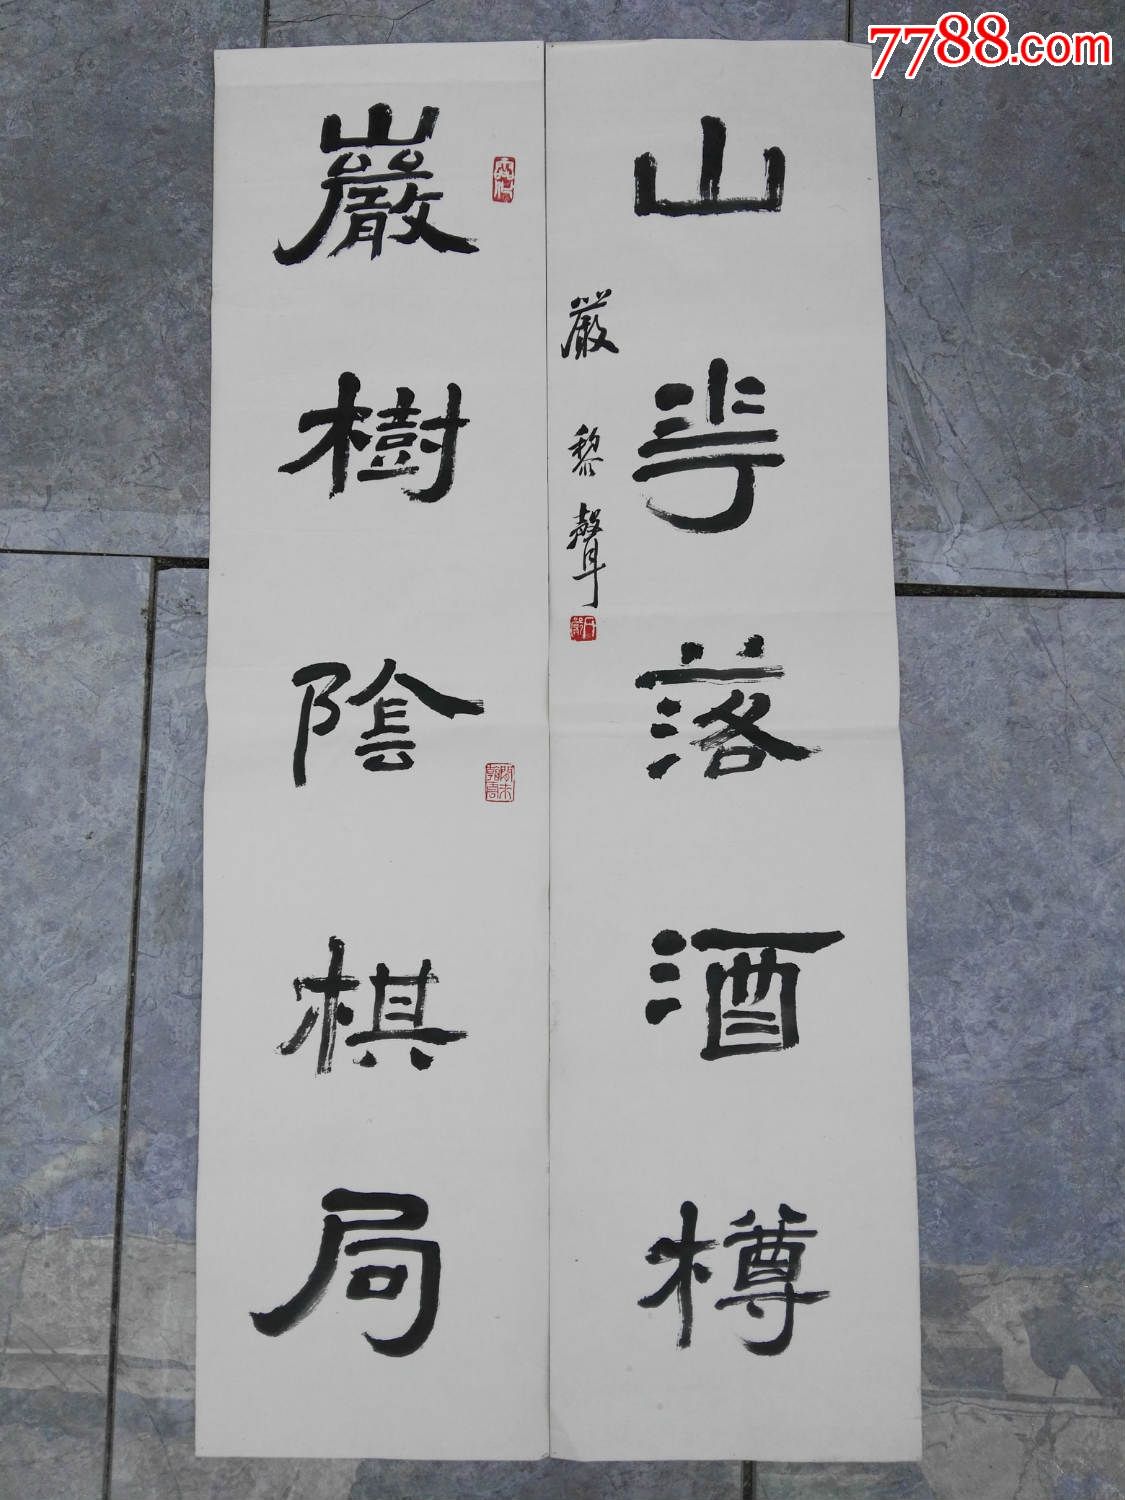 7788.com
山花落酒樽
嚴黎聲
巖樹陰棋局